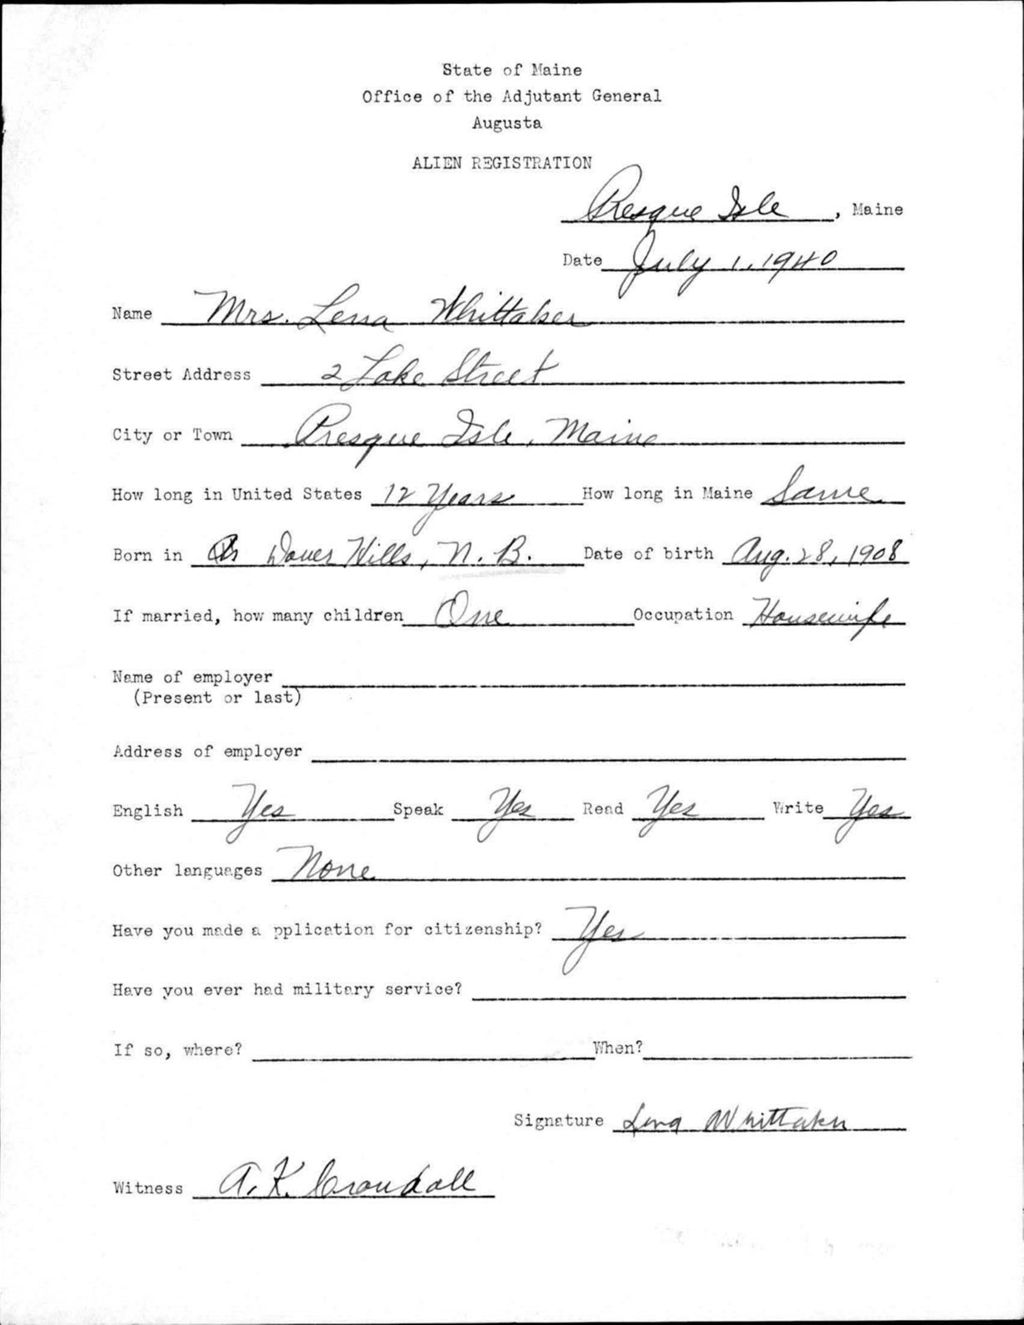 State of Maine
Office of the Adjutant General
Augusta
ALIEN REGISTRATION
Presque Isle, Maine
Date July 1, 1940
Name Mrs. Lena Whittaker
Street Address 2 Lake Street
City or Town Presque Isle, Maine
How long in United States 12 Years How long in Maine Same
Born in Dover Hills, N. B. Date of birth Aug. 28, 1908
If married, how many children One Occupation Housewife
Name of employer
(Present or last)
Address of employer
English Yes Speak Yes Read Yes Write Yes
Other languages None
Have you made a pplication for citizenship? Yes
Have you ever had military service?
If so, where? When?
Signature Lena Whittaker
Witness A. K. Crandall